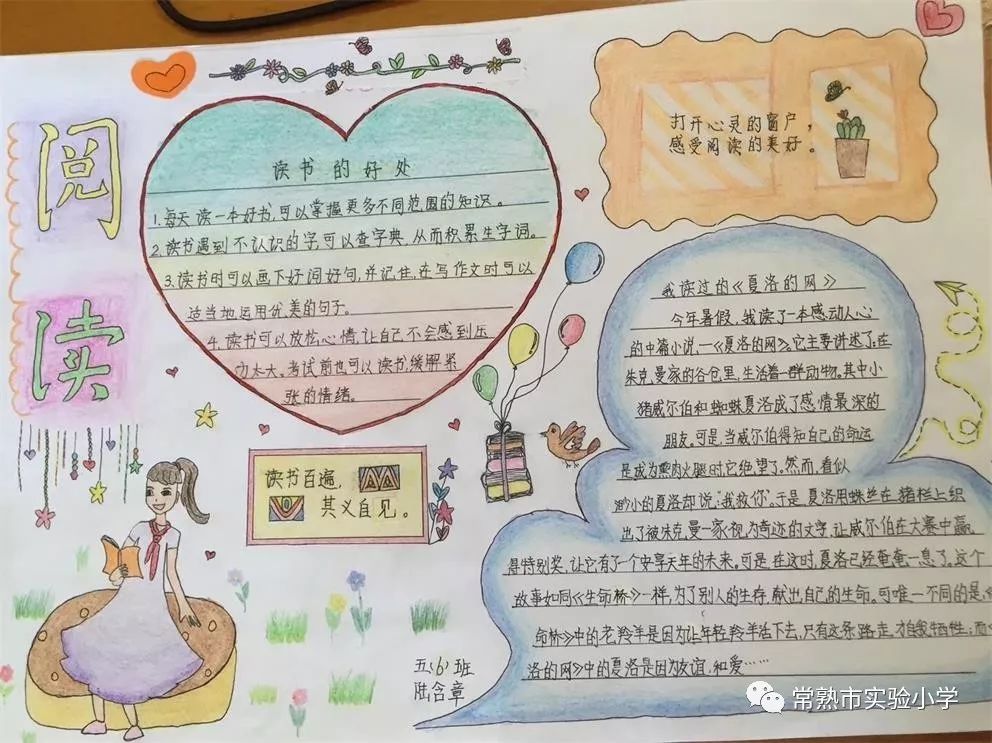 阅读
读书的好处
1.每天读一本好书,可以掌握更多不同范围的知识。
2.读书遇到不认识的字,可以查字典,从而积累生字词。
3.读书时可以画下好词好句,并记住,在写作文时可以
适当地运用优美的句子。
4.读书可以放松心情,让自己不会感到压
力太大。考试前也可以读书,缓解紧
张的情绪。
读书百遍,
其义自见。
打开心灵的窗户,
感受阅读的美好。
我读过的《夏洛的网》
今年暑假,我读了一本感动人心
的中篇小说,—《夏洛的网》。它主要讲述了,在
朱克曼家的谷仓里,生活着一群动物。其中小
猪威尔伯和蜘蛛夏洛成了感情最深的
朋友。可是,当威尔伯得知自己的命运
是成为熏肉火腿时,它绝望了。然而,看似
渺小的夏洛却说:“我救你”。于是,夏洛用蛛丝在猪栏上织
出了被朱克曼一家视为奇迹的文字,让威尔伯在大赛中赢
得特别奖,让它有了一个安享天年的未来。可是在这时,夏洛已经奄奄一息了。这个
故事如同《生命桥》一样,为了别人的生存,献出自己的生命。可唯一不同的是,《生
命桥》中的老羚羊是因为让年轻羚羊活下去,只有这条路走,才自我牺牲;而《
洛的网》中的夏洛是因为友谊,和爱……
五(6)班
陆含章
常熟市实验小学